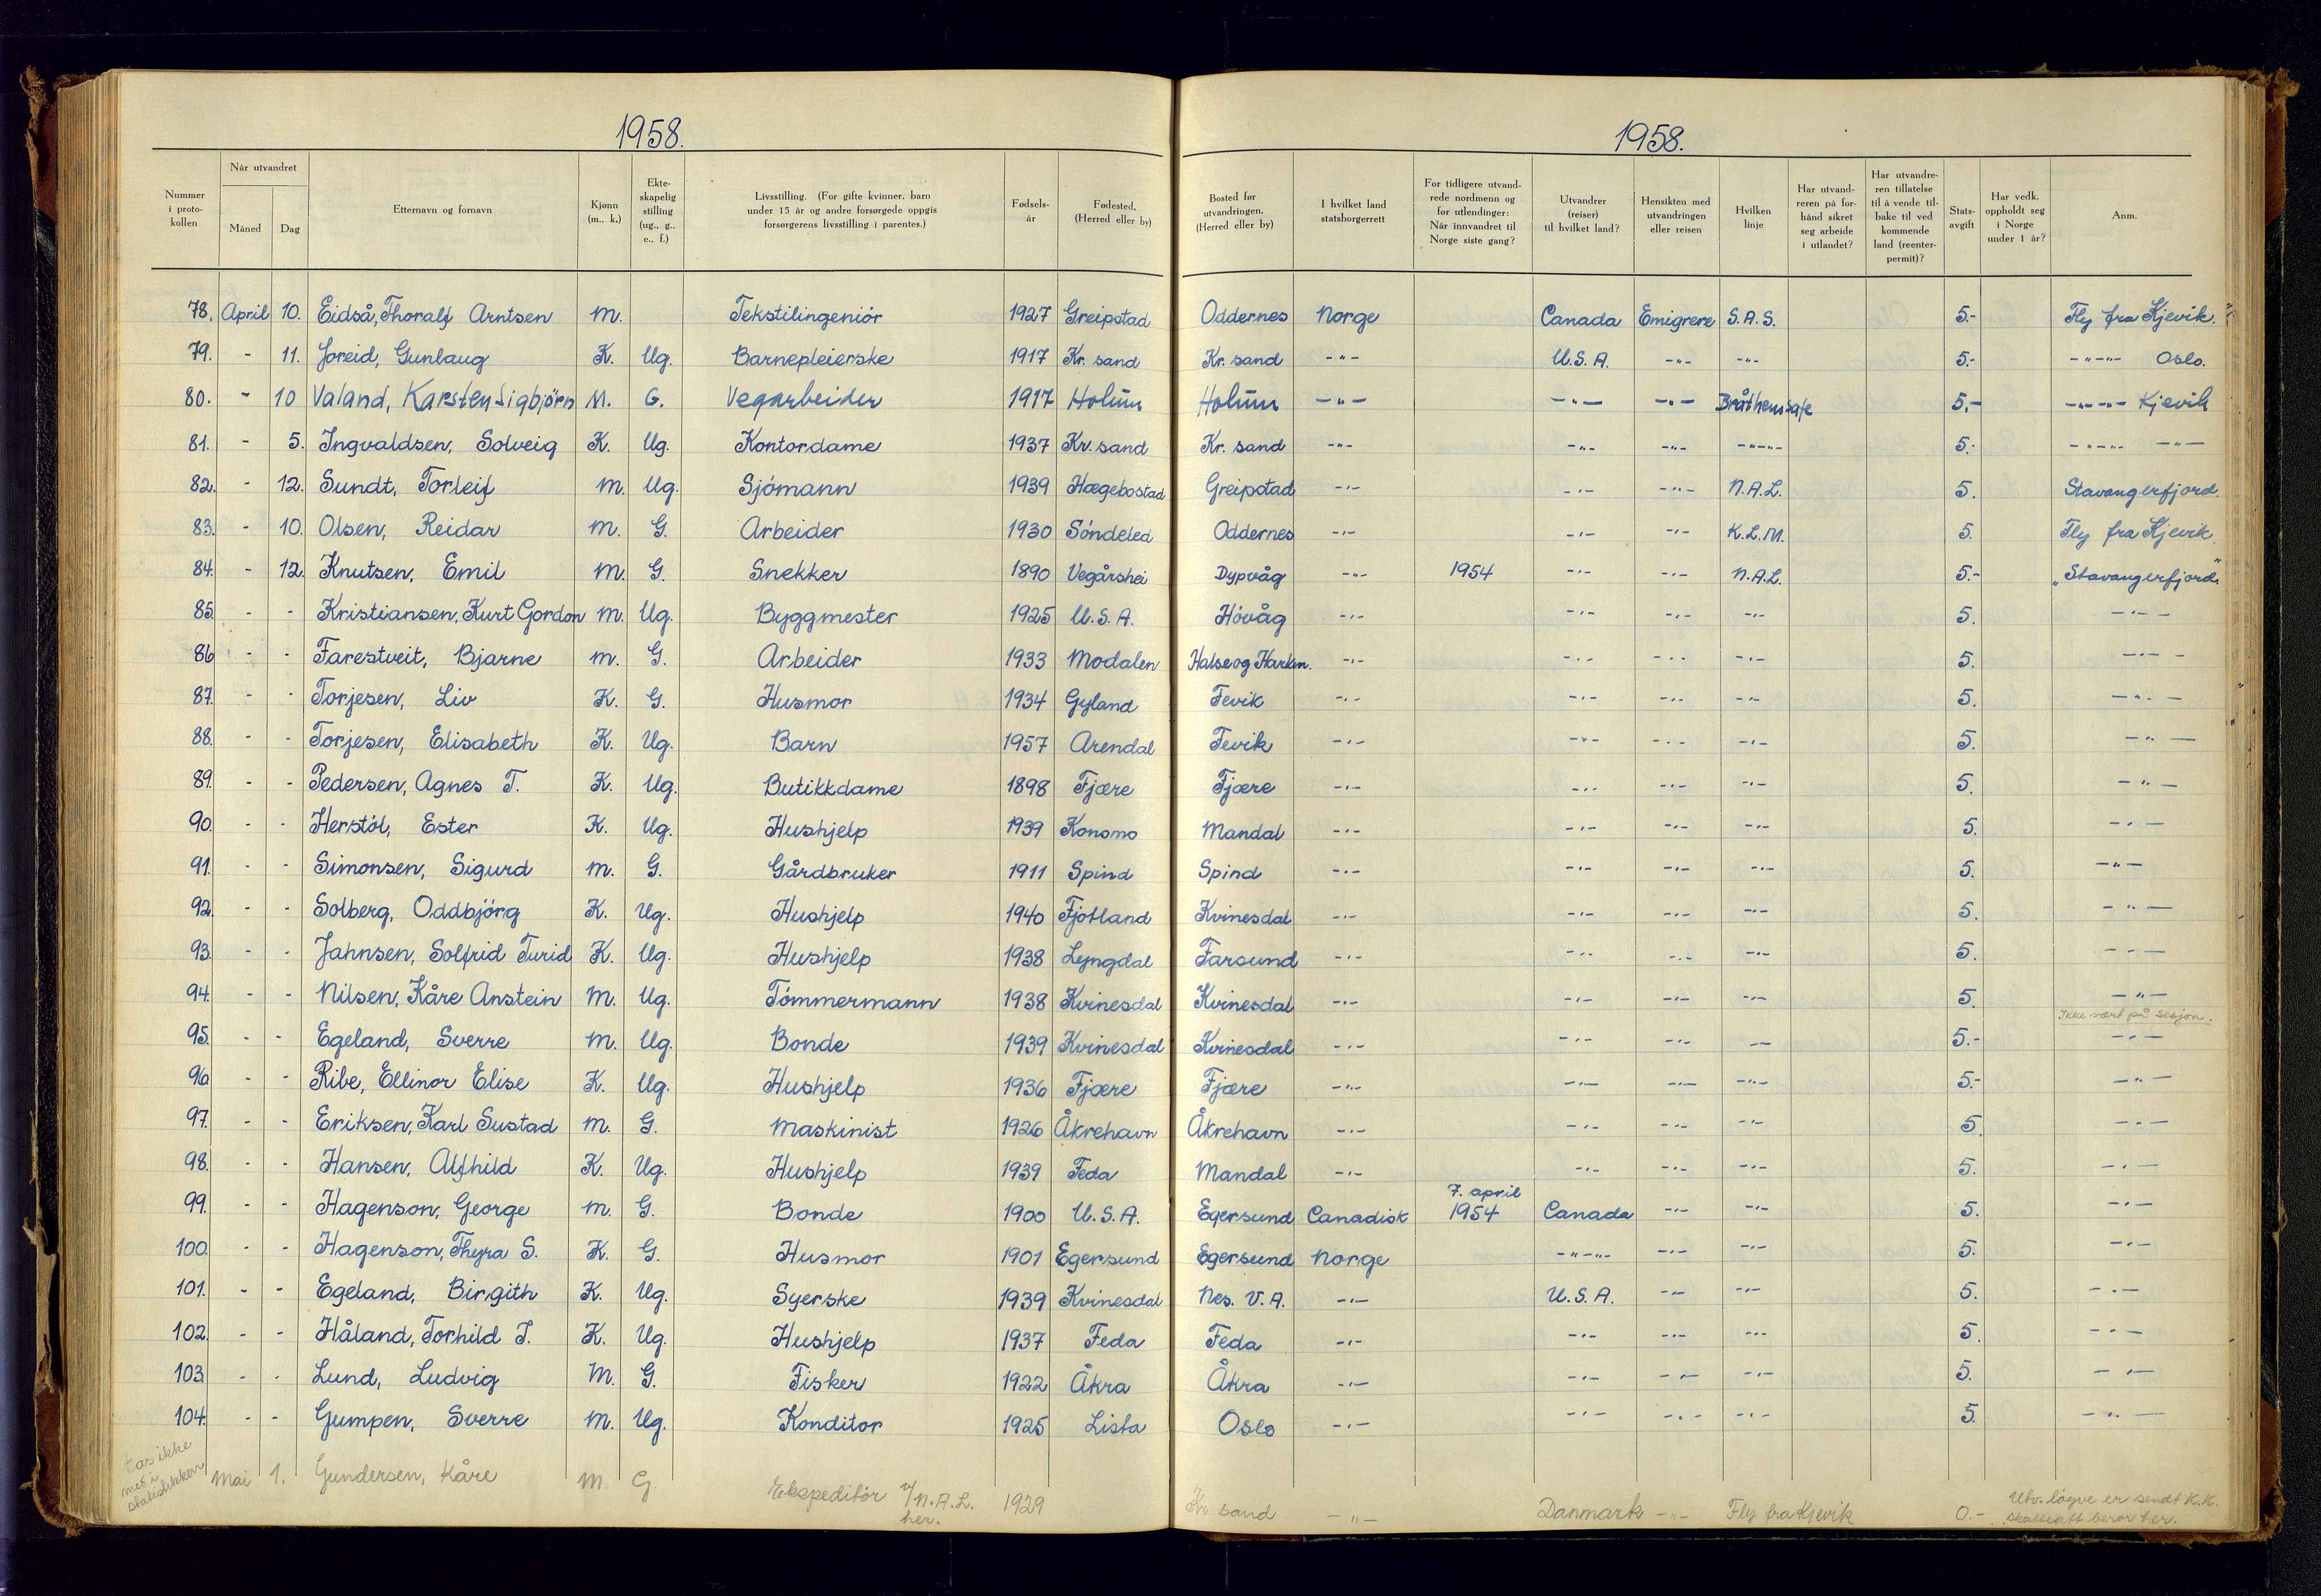 1958.
1958.
Nummer i protokollen | Når utvandret | Måned | Dag | Etternavn og fornavn | Kjønn (m., k.) | Ekteskapelig stilling (ug., g., e., f.) | Livsstilling. (For gifte kvinner, barn under 15 år og andre forsørgede oppgis forsørgerens livsstilling i parentes.) | Fødselsår | Fødested. (Herred eller by) | Bosted før utvandringen. (Herred eller by) | I hvilket land statsborgerrett | For tidligere utvandrede nordmenn og for utlendinger: Når innvandret til Norge siste gang? | Utvandrer (reiser) til hvilket land? | Hensikten med utvandringen eller reisen | Hvilken linje | Har utvandreren på forhånd sikret seg arbeide i utlandet? | Har utvandreren tillatelse til å vende tilbake til vedkommende land (reenterpermit)? | Statsavgift | Har vedk. oppholdt seg i Norge under 1 år? | Anm.
78. April 10. Eidså, Thoralf Arntsen M. Tekstilingeniör 1927 Greipstad Oddernes Norge Canada Emigrere S.A.S. 5.- Fly fra Kjevik.
79. - 11. Joreid, Gunlaug K. Ug. Barnepleierske 1917 Kr. sand Kr. sand -"- U.S.A. -"- -"- 5.- -"-"- Oslo.
80. - 10 Valand, Karsten Sigbjörn M. G. Vegarbeider 1917 Holum Holum -"- -"- -"- Bråthensafe 5.- -"-"- Kjevik
81. - 5. Ingvaldsen, Solveig K. Ug. Kontordame 1937 Kr. sand Kr. sand -"- -"- -"- -"-"- 5.- -"-"- -"-
82. - 12. Sundt, Torleif M. Ug. Sjómann 1939 Hægebostad Greipstad -"- -"- -"- N.A.L. 5. Stavangerfjord.
83. - 10. Olsen, Reidar M. G. Arbeider 1930 Söndeled Oddernes -"- -"- -"- K.L.M. 5. Fly fra Kjevik.
84. - 12. Knutsen, Emil M. G. Snekker 1890 Vegårshei Dypvåg -"- 1954 -"- -"- N.A.L. 5.- "Stavangerfjord."
85. - - Kristiansen, Kurt Gordon M. Ug. Byggmester 1925 U.S.A. Hövåg -"- -"- -"- -"- 5. -"-
86 - - Farestveit, Bjarne M. G. Arbeider 1933 Modalen Halse og Harkm. -"- -"- -"- -"- 5. -"-
87. - - Torjesen, Liv K. G. Husmor 1934 Gyland Fevik -"- -"- -"- -"- 5. -"-
88. - - Torjesen, Elisabeth K. Ug. Barn 1957 Arendal Fevik -"- -"- -"- -"- 5. -"-
89. - - Pedersen, Agnes T. K. Ug. Butikkdame 1898 Fjære Fjære -"- -"- -"- -"- 5. -"-
90. - - Herstöl, Ester K. Ug. Hushjelp 1939 Konsmo Mandal -"- -"- -"- -"- 5. -"-
91. - - Simonsen, Sigurd M. G. Gårdbruker 1911 Spind Spind -"- -"- -"- -"- 5. -"-
92. - - Solberg, Oddbjörg K. Ug. Hushjelp 1940 Fjotland Kvinesdal -"- -"- -"- -"- 5. -"-
93. - - Jahnsen, Solfrid Turid K. Ug. Hushjelp 1938 Lyngdal Farsund -"- -"- -"- -"- 5. -"-
94. - - Nilsen, Kåre Anstein M. Ug. Tömmermann 1938 Kvinesdal Kvinesdal -"- -"- -"- -"- 5. -"-
Ikke vært på sesjon.
95. - - Egeland, Sverre M. Ug. Bonde 1939 Kvinesdal Kvinesdal -"- -"- -"- -"- 5.- -"-
96 - - Ribe, Ellinor Elise K. Ug. Hushjelp 1936 Fjære Fjære -"- -"- -"- -"- 5.- -"-
97. - - Eriksen, Karl Sustad M. G. Maskinist 1926 Åkrehavn Åkrehavn -"- -"- -"- -"- 5. -"-
98. - - Hansen, Alfhild K. Ug. Hushjelp 1939 Feda Mandal -"- -"- -"- -"- 5. -"-
99. - - Hagenson, George M. G. Bonde 1900 U.S.A. Egersund Canadisk 7. april 1954 Canada -"- -"- 5. -"-
100. - - Hagenson, Thyra S. K. G. Husmor 1901 Egersund Egersund Norge -"-"- -"- -"- 5. -"-
101. - - Egeland, Birgith K. Ug. Syerske 1939 Kvinesdal Nes. V.A. -"- U.S.A. -"- -"- 5. -"-
102. - - Håland, Torhild J. K. Ug. Hushjelp 1937 Feda Feda -"- -"- -"- -"- 5. -"-
103. - - Lund, Ludvig M. G. Fisker 1922 Åkra Åkra -"- -"- -"- -"- 5. -"-
104. - - Gumpen, Sverre M. Ug. Konditor 1925 Lista Oslo -"- -"- -"- -"- 5. -"-
tas ikke med i statistikken Mai 1. Gundersen, Kåre M. G. Ekspeditör v/N.A.L. her. 1929 Kr. sand -"- Danmark -"- Fly fra Kjevik 0.- Utv. löyve er sendt K.K. skatteatt. beror her.